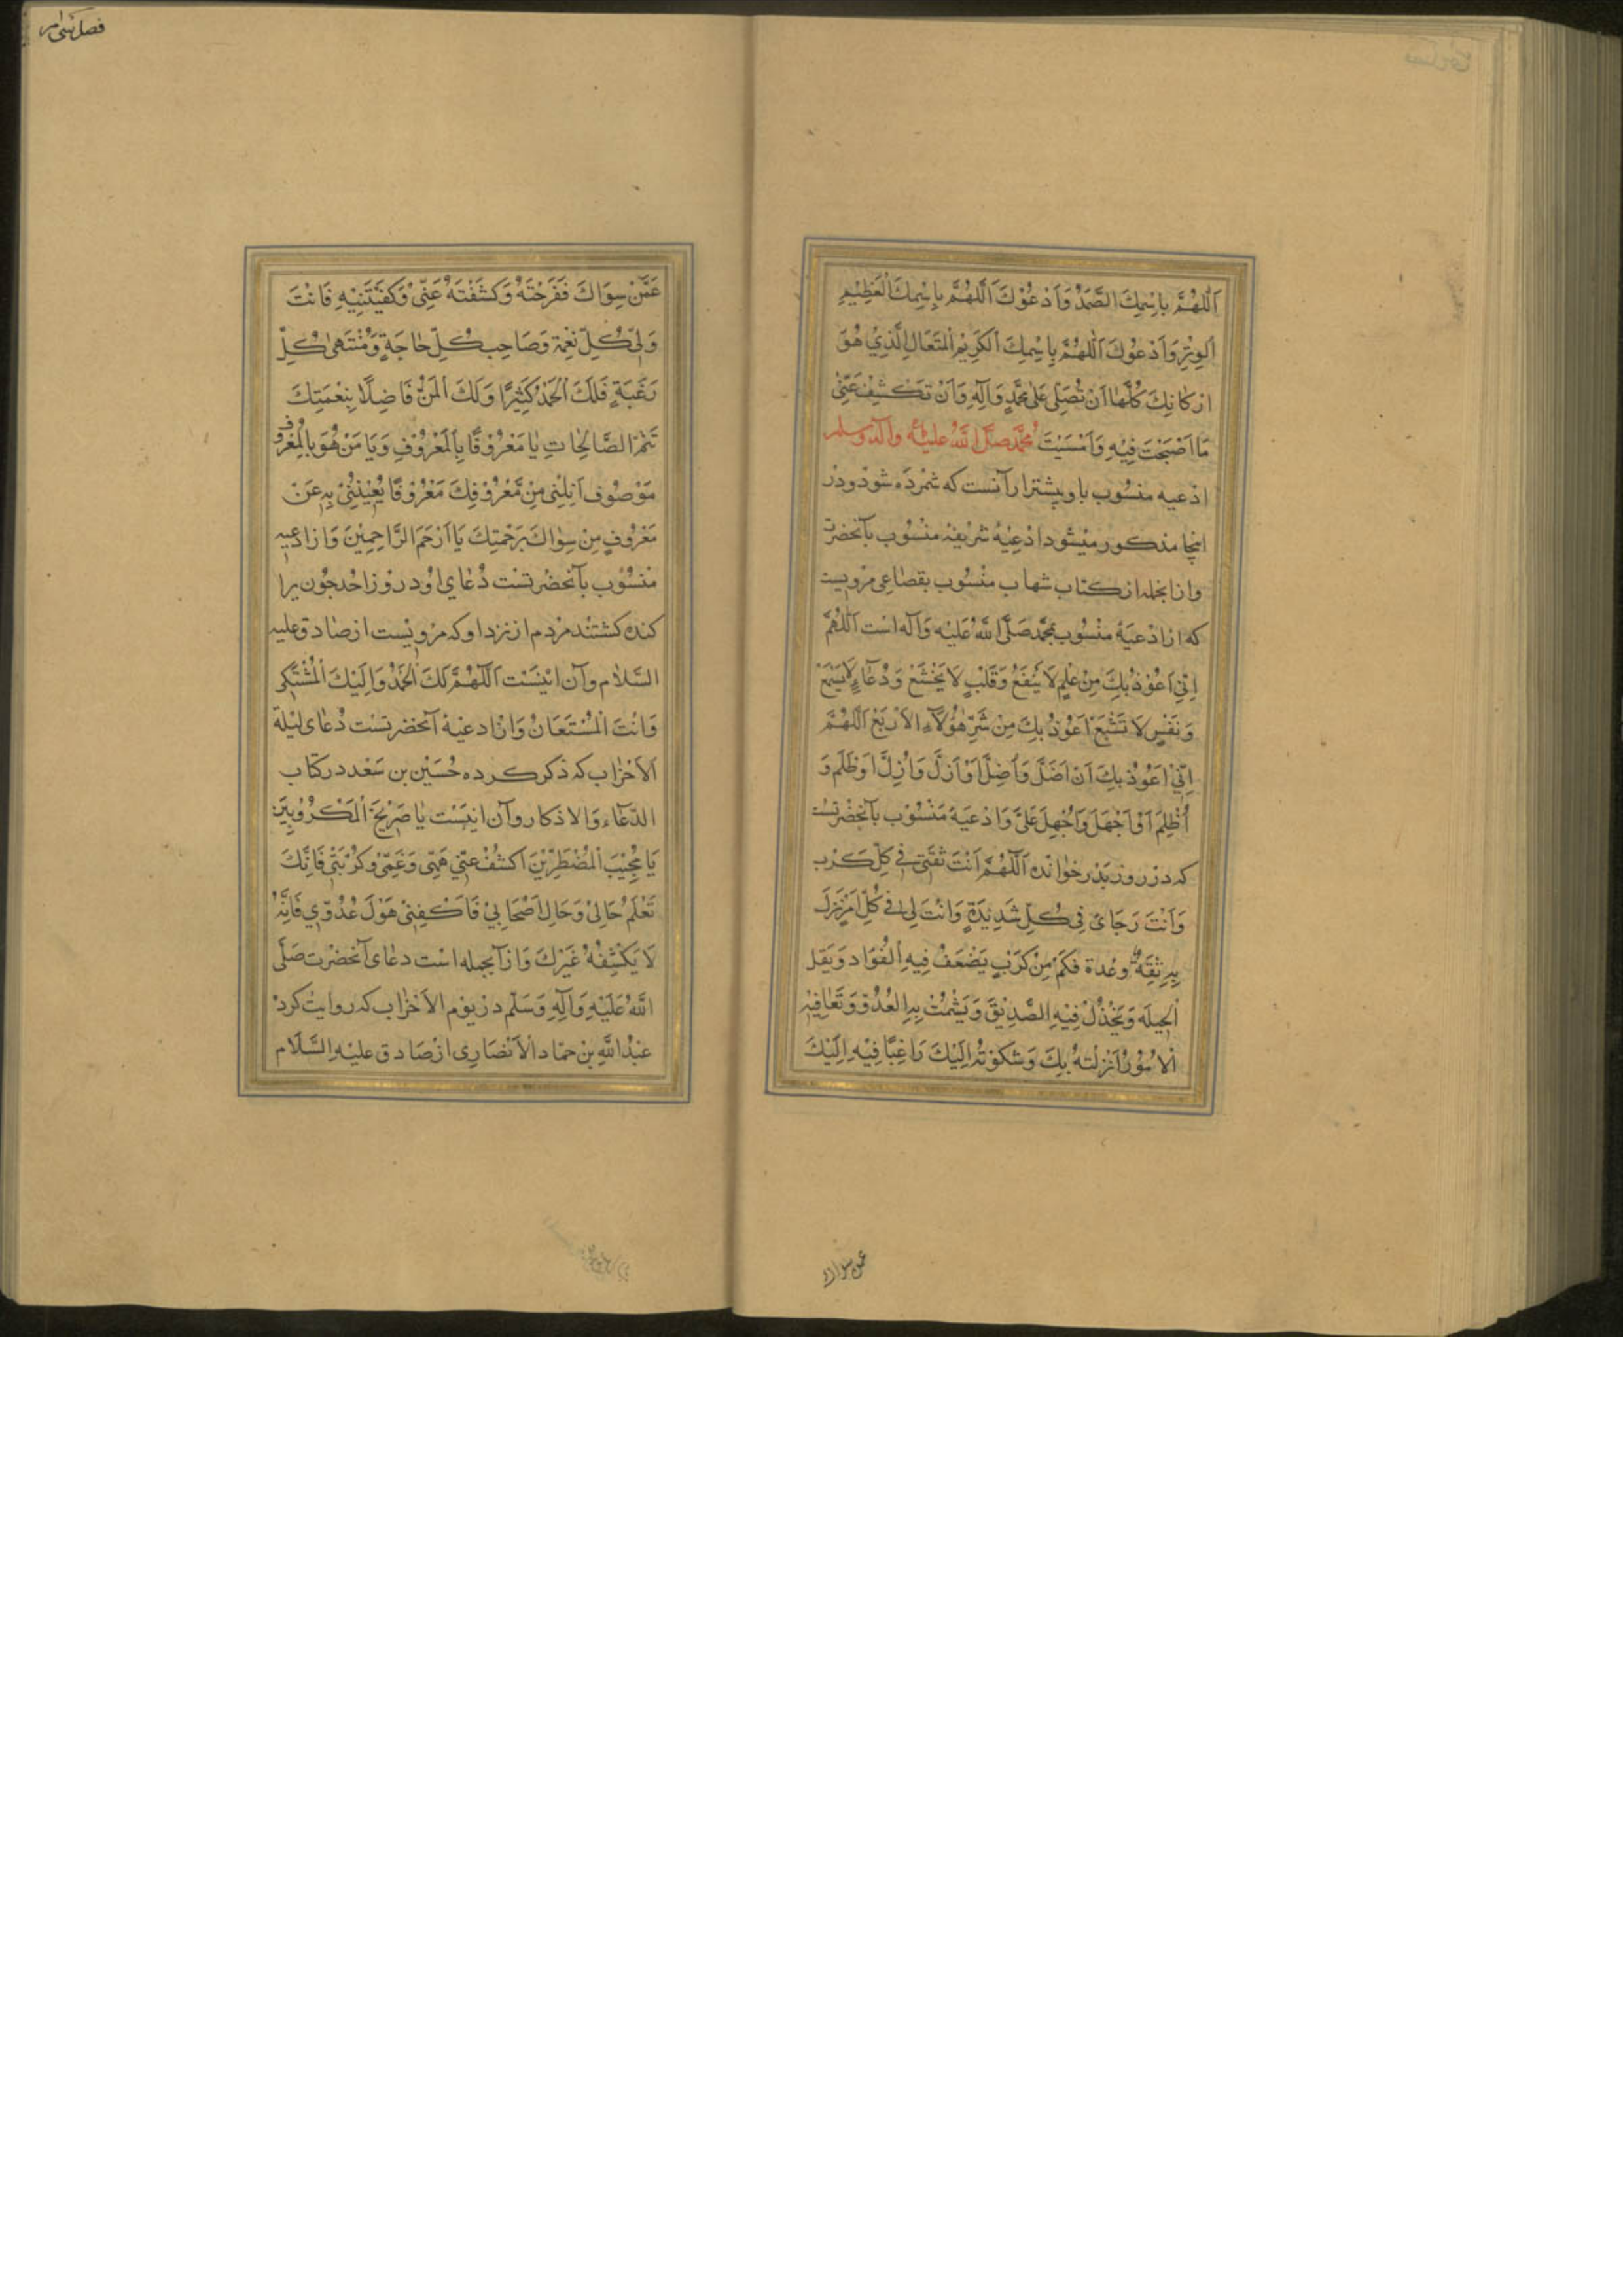 اَللّٰهُمَّ بِاسْمِكَ الصَّمَدُ وَاَدْعُوْكَ اَللّٰهُمَّ بِاِسْمِكَ الْعَظِيْمِ
اَلْوِتْرِ وَاَدْعُوْكَ اَللّٰهُمَّ بِاِسْمِكَ الْكَرِيْمِ الْمُتَعَالِ الَّذِيْ هُوَ
اَرْكَانِكَ كُلَّهَا اَنْ تُصَلِّىَ عَلٰى مُحَمَّدٍ وَآلِهِ وَاَنْ تَكْشِفَ عَنِّىْ
مَا اَصْبَحْتَ فِيْهِ وَاَمْسَيْتَ مُحَمَّد صَلَّى اللّٰهُ عَلَيْهِ وَآلِهِ وَسلم
ادْعيه منسُوب باو پيشتر ازانست كه شمرْدَه شوْد و درْ
اينجا مذكور ميشوْد ادْعِيْهٔ شَرِيْفهٔ منْسُوْب بآنحضرت
وازانجمله از كتاب شهاب منْسُوب بقضاعى مرويست
كه از ادْعيَهٔ منْسُوب بمحمَّد صَلَّى اللّٰهُ عَلَيْهِ وَآلِه است اَللّٰهُمَّ
اِنِّىْ اَعُوْذُ بِكَ مِنْ عِلْمٍ لَا يَنْفَعُ وَقَلْبٍ لَا يَخْشَعْ وَدُعَاءٍ لَا يُسْمَعْ
وَنَفْسٍ لَا تَشْبَعْ اَعُوْذُ بِكَ مِنْ شَرِّ هٰؤُلَاءِ الاَرْبَعْ اَللّٰهُمَّ
اِنِّىْ اَعُوْذُ بِكَ اَنْ اَضَلَّ وَاُضِلَّ اَوْ اَزَلَّ وَاُزِلَّ اَوْ ظَلَمَ وَ
اُظْلِمَ اَوْ اَجْهَلَ وَاُجْهِلَ عَلَىَّ وَادْعيَهٔ مَنْسُوْب بآنحضْرتسْت
كه درْ روز بَدْر خوانْده اَللّٰهُمَّ اَنْتَ ثِقَتِى فِى كُلِّ كَرْبِ
وَاَنْتَ رَجَاىَ فِى كُلِّ شَدِيْدَةٍ وَاَنْتَ لِى فِى كُلِّ اَمْرٍ نَزَلَ
بِىْ ثِقَةٌ وَعُدة فَكَمْ مِنْ كَرْبٍ يَضْعَفُ فِيْهِ الْفُوَاد وَيَقل
الْحِيلَه وَيَخْذُلُ فِيْهِ الصَّدِيْقَ وَيَشْمُتُ بِهِ الْعُدُوّ وَتَعَافِيْهِ
اَلامُوْرُ اَنْزَلْتهُ بِكَ وَشَكَوْتُهُ اِلَيْكَ رَاغِبًا فِيْهِ اِلَيْكَ
عمن سواك
فصل سى ام
عَمَّنْ سِوَاكَ فَفَرَجْتَهُ وَكَشَفْتَهُ عَنِّىْ وَكَفَيْتَنِيْهِ فَاَنْتَ
وَلِىُّ كُلِّ نِعْمِة وَصَاحِب كُلِّ حَاجَةٍ وَمُنْتَهٰى كُلِّ
رَغْبَةٍ فَلَكَ الْحَمْدُ كَثِيْرًا وَلَكَ الْمَنُّ فَاضِلًا بِنِعْمَتِكَ
تَتِمُّ الصَّالِحَاتِ يَا مَعْرُوْفًا بِالْمَعْرُوْفِ وَيَا مَنْ هُوَ بِالْمَعْرُوفِ
مَوْصُوْف اَنِلْنِى مِنْ مَّعْرُوْفِكَ مَعْرُوْفًا يُغْنِيْنِىْ بِهِ عَنْ
مَعْرُوفٍ مِنْ سِوَاكَ بَرَحْمَتِكَ يَا اَرْحَمَ الرَّاحِمِيْنَ وَازادعيه
منْسُوْب بآنحضْرتسْت دُعَاى اوْ درْ روْز اُحُد چوْن پرا
كنده كشتند مرْدم از نزد او كه مرْويْست از صَادق عليه
السَّلام وآن اينسَت اَللّٰهُمَّ لَكَ الْحَمْدُ وَاِلَيْكَ الْمُشْتَكٰى
وَاَنْتَ الْمُسْتَعَانُ وَازادعيَهٔ آنحضرتسْت دُعَاى ليْلة
الاَحْزَاب كه ذكر كرده حُسَيْن بن سَعْد در كتاب
الدُّعَاء وَالاذكار وآن اينَسْت يَا صَرِيْخَ الْمَكْرُوْبِيْنَ
يَا مُجِيْبَ الْمُضْطَرِّيْنَ اكَشُفْ عنِّى هَمِّى وَغَمِّىْ وَكُرْبَتِىْ فَاِنَّكَ
تَعْلَمُ حَالِىْ وَحَالِ اَصْحَابِىْ فَاكْفِنِىْ هَوْلَ عُدُوِّىْ فَاِنَّهُ
لَا يَكْشِفُهُ غَيْرَكَ وَازآنجمله اسْت دعَاى آنحضْرت صَلَّى
اللّٰهُ عَلَيْهِ وَآلِهِ وَسَلَّم درْ يوْم الاَحْزَاب كه روايتْ كردْ
عبْدُ اللّٰهِ بن حمّاد الاَنْصَارِى ازْ صَادق عليْه السَّلَام